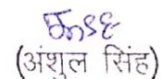 (अंशुल सिंह)